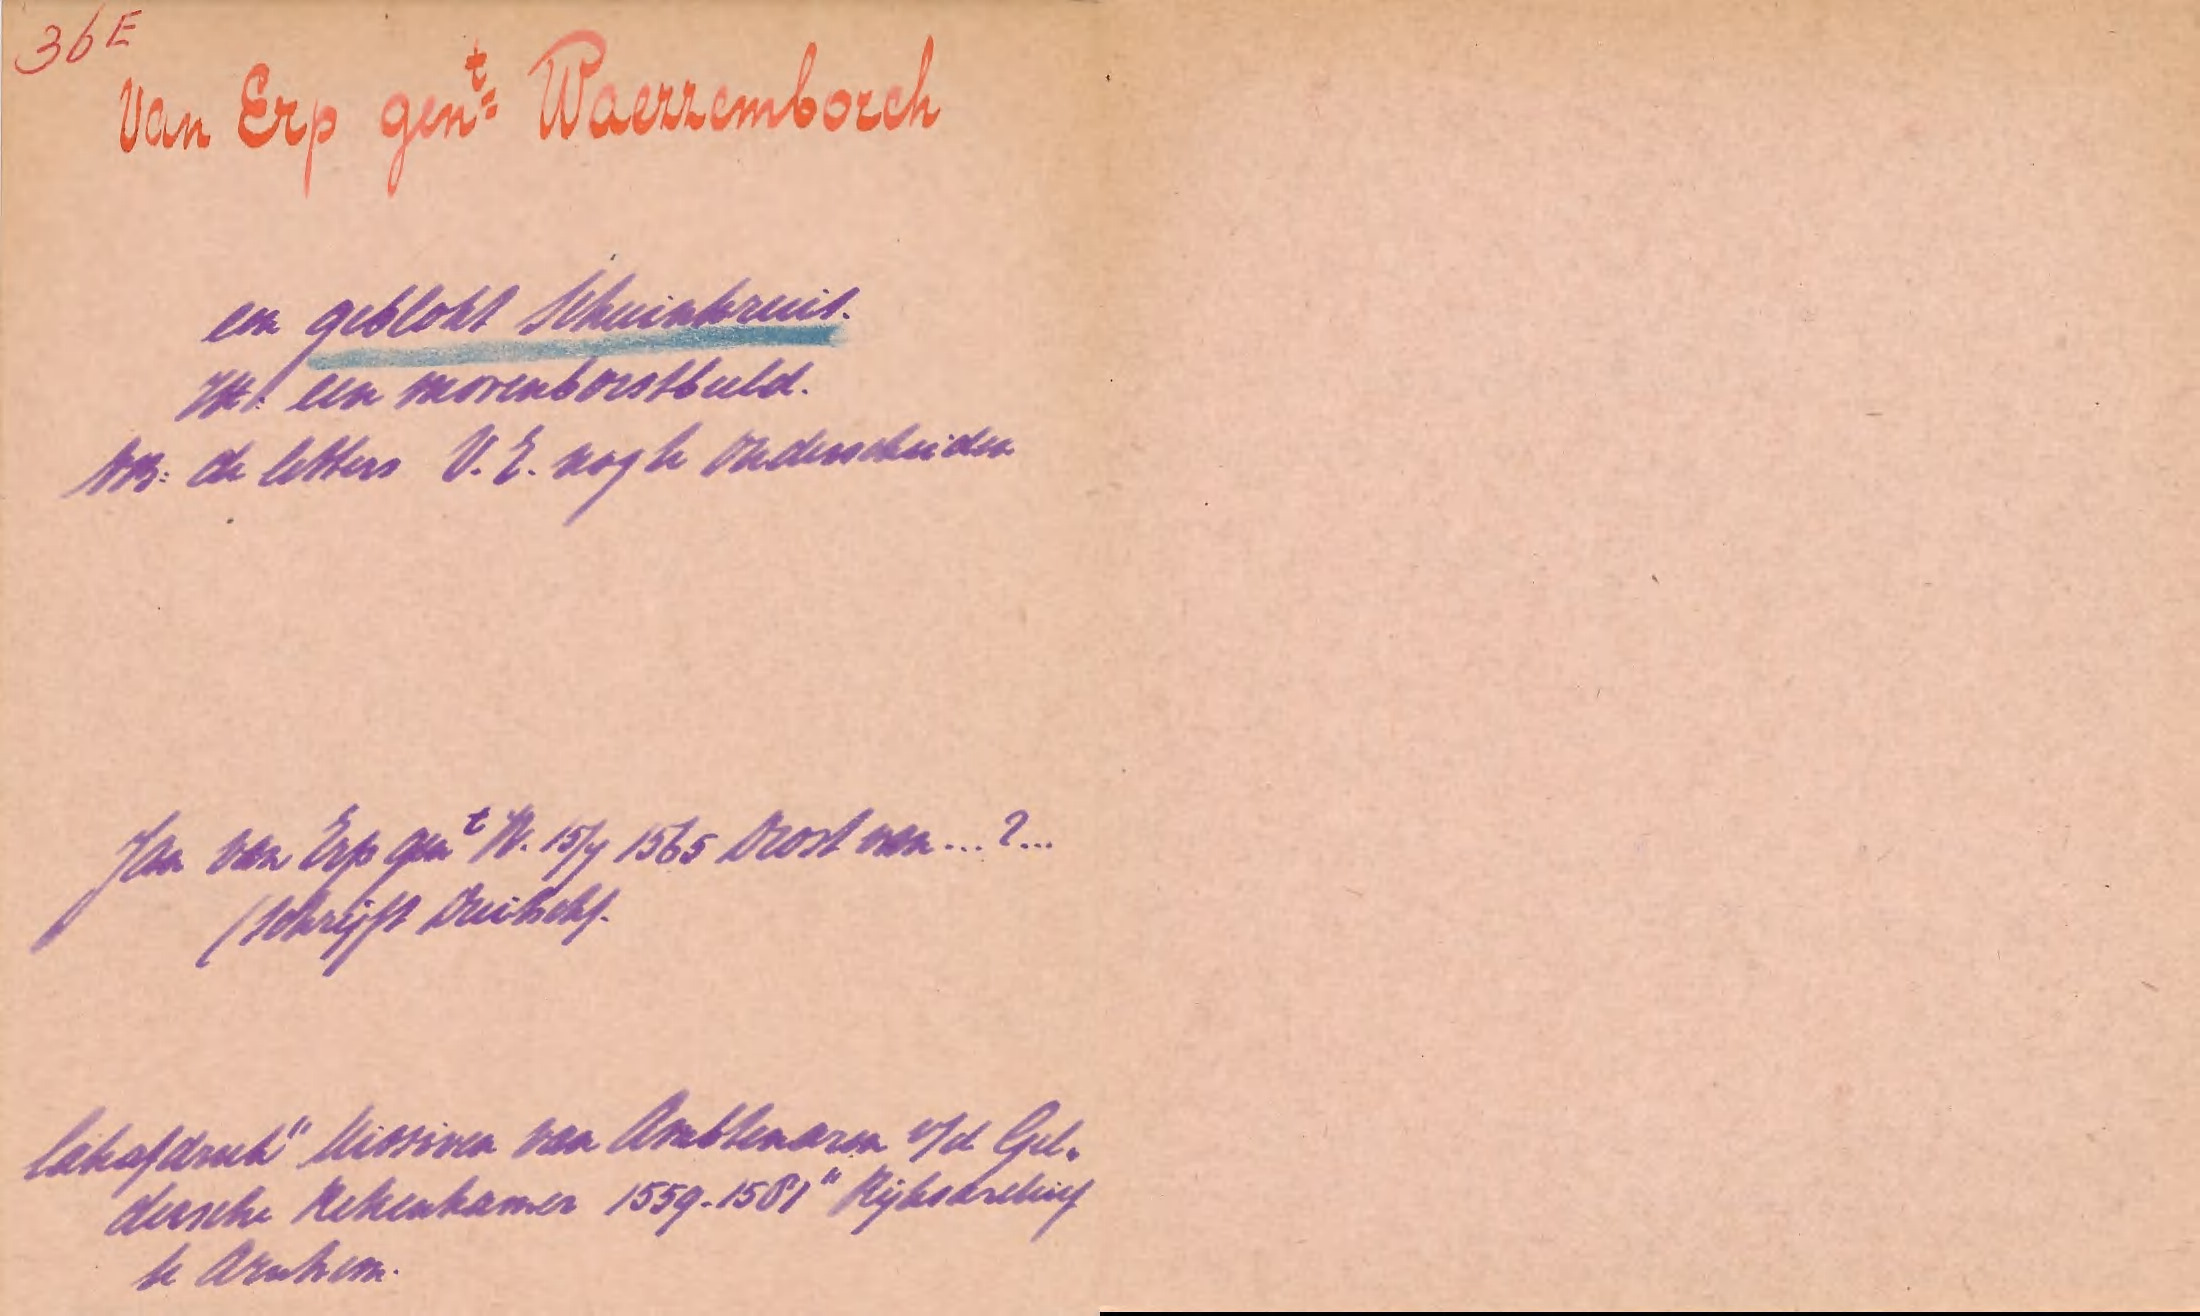 36E
Van Erp gent= Waerzemborch
een geblokt Schuinkruis.
Ht: een morenborstbeeld.
de letters V. E. nog te onderscheiden
Jan van Erp gent W. 15/7 1565 Drost van ... ? ...
(schrijft Duitsch).
Lakafdruk "Missiven van Ambtenaren v/d Gel.
dersche Rekenkamer 1559-1581" Rijksarchief
te Arnhem.